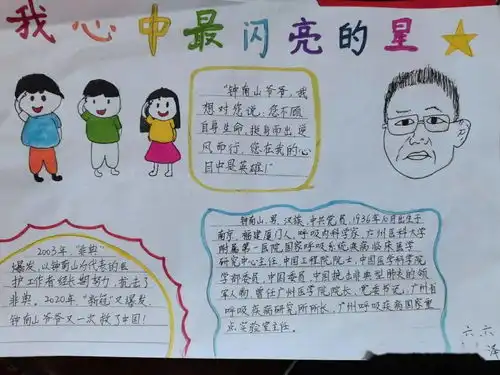 我心中最闪亮的星
"钟南山爷爷,我
想对您说:您不顾
自身生命,挺身而出逆
风而行,您在我的心
目中是英雄!"
2003年,"非典"
爆发,以钟南山为代表的医
护工作者经长期努力,抗击了
非典。2020年"新冠"又爆发,
钟南山爷爷又一次救了中国!
钟南山,男,汉族,中共党员,1936年10月出生于
南京,福建厦门人,呼吸内科学家,广州医科大学
附属第一医院,国家呼吸系统疾病临床医学
研究中心主任,中国工程院院士,中国医学科学院
学部委员,中国委员,中国抗击非典型肺炎的领
军人物,曾任广州医学院院长,党委书记,广州省
呼吸疾病研究所所长,广州呼吸疾病国家重
点实验室主任。
六六
泽